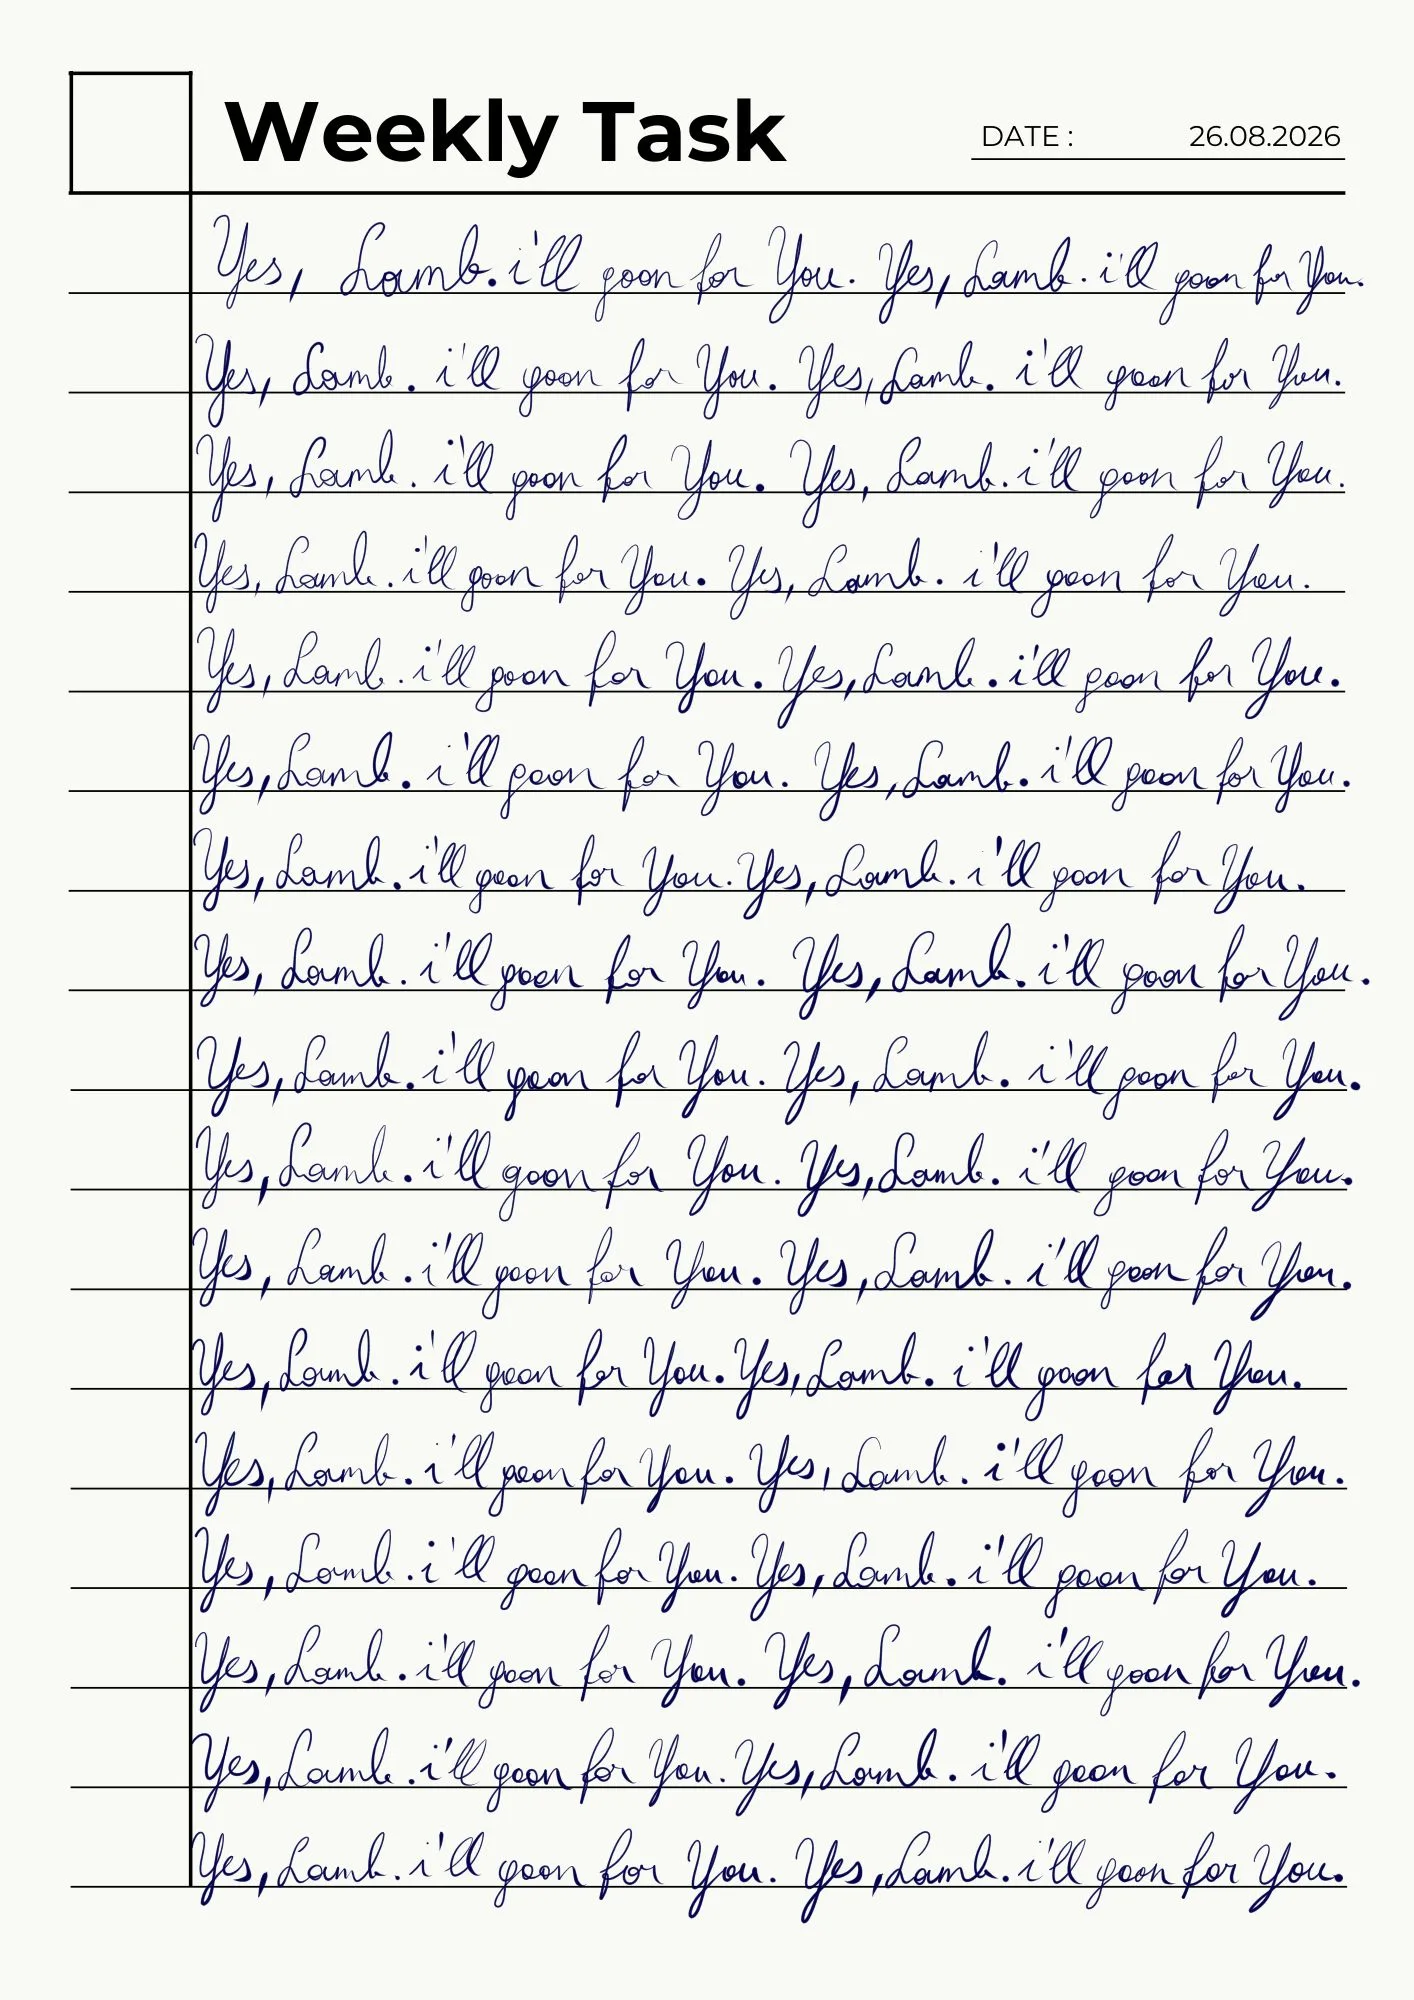 Weekly Task
DATE : 26.08.2026
Yes, Lamb. i'll goon for You. Yes, Lamb. i'll goon for You.
Yes, Lamb. i'll goon for You. Yes, Lamb. i'll goon for You.
Yes, Lamb. i'll goon for You. Yes, Lamb. i'll goon for You.
Yes, Lamb. i'll goon for You. Yes, Lamb. i'll goon for You.
Yes, Lamb. i'll goon for You. Yes, Lamb. i'll goon for You.
Yes, Lamb. i'll goon for You. Yes, Lamb. i'll goon for You.
Yes, Lamb. i'll goon for You. Yes, Lamb. i'll goon for You.
Yes, Lamb. i'll goon for You. Yes, Lamb. i'll goon for You.
Yes, Lamb. i'll goon for You. Yes, Lamb. i'll goon for You.
Yes, Lamb. i'll goon for You. Yes, Lamb. i'll goon for You.
Yes, Lamb. i'll goon for You. Yes, Lamb. i'll goon for You.
Yes, Lamb. i'll goon for You. Yes, Lamb. i'll goon for You.
Yes, Lamb. i'll goon for You. Yes, Lamb. i'll goon for You.
Yes, Lamb. i'll goon for You. Yes, Lamb. i'll goon for You.
Yes, Lamb. i'll goon for You. Yes, Lamb. i'll goon for You.
Yes, Lamb. i'll goon for You. Yes, Lamb. i'll goon for You.
Yes, Lamb. i'll goon for You. Yes, Lamb. i'll goon for You.